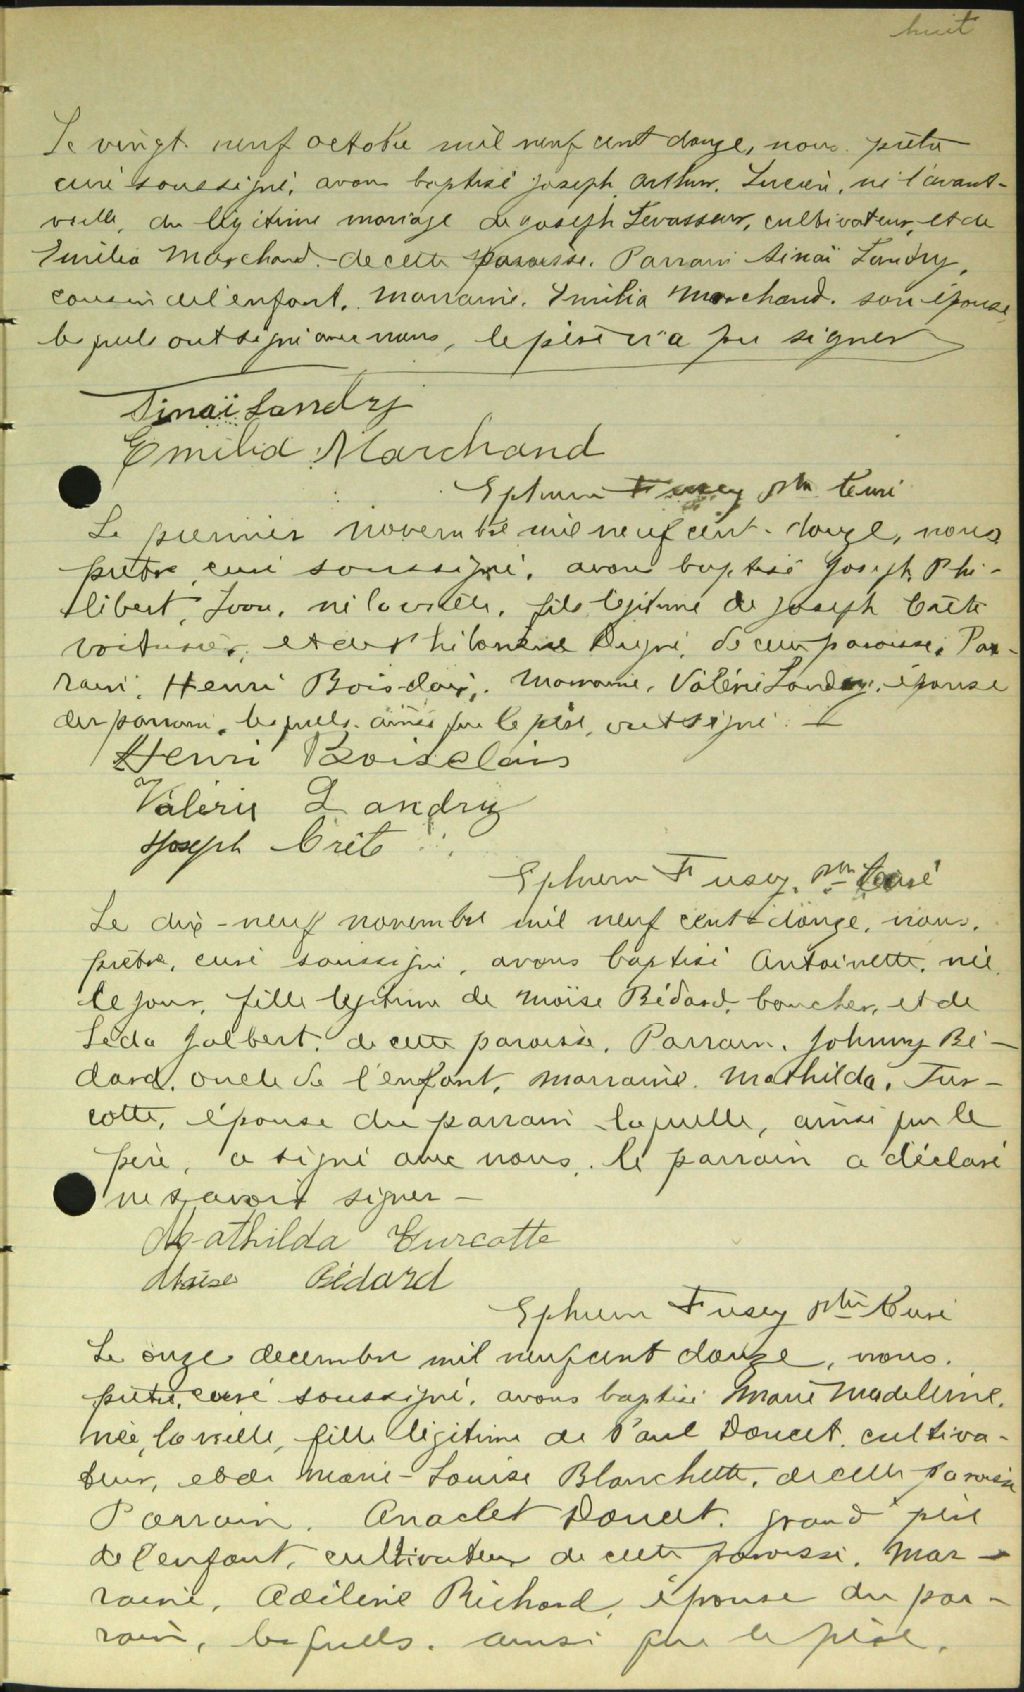 huit
Le vingt neuf octobre mil neuf cent douze, nous prêtre
curé soussigné, avons baptisé Joseph Arthur, Lucien, né l'avant-
veille, du légitime mariage de Joseph Levasseur, cultivateur, et de
Emilia Marchand de cette paroisse. Parrain Sinaï Landry,
cousin de l'enfant. Marraine, Emilia Marchand. son épouse,
lesquels ont signé avec nous, le père n'a pu signer
Sinaï Landry
Emilia Marchand
Ephrem Fusey ptre curé
Le premier novembre mil neuf cent-douze, nous
prêtre curé soussigné, avons baptisé Joseph, Phi-
libert, Yvon, né la veille, fils légitime de Joseph Crête
voiturier, et de Philomène Dugré, de cette paroisse. Par-
rain, Henri Boisclair, Marraine, Valérie Landry, épouse
du parrain, lesquels ainsi que le père, ont signé. -
Henri Boisclair
Valérie Landry
Joseph Crête
Ephrem Fusey, ptre curé
Le dix-neuf novembre mil neuf cent-douze, nous,
prêtre, curé soussigné, avons baptisé Antoinette, née
ce jour, fille légitime de Moïse Bédard, boucher, et de
Léda Jalbert, de cette paroisse. Parrain, Johnny Bé-
dard, oncle de l'enfant, marraine, Mathilda, Tur-
cotte, épouse du parrain laquelle, ainsi que le
père, a signé avec nous, le parrain a déclaré
ne savoir signer -
Mathilda Turcotte
Moïse Bédard
Ephrem Fusey ptre curé
Le onze decembre mil neuf cent douze, nous,
prêtre, curé soussigné, avons baptisé Marie Madeleine,
née, la veille, fille légitime de Paul Doucet, cultiva-
teur, et de Marie-Louise Blanchette, de cette paroisse
Parrain, Anaclet Doucet, grand père
de l'enfant, cultivateur de cette paroisse. Mar-
raine, Adéline Richard, épouse du par-
rain, lesquels, ainsi que le père,